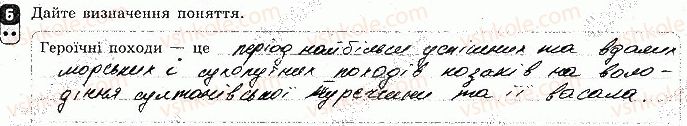 6 Дайте визначення поняття.
Героїчні походи — це період найбільш успішних та вдалих
морських і сухопутних походів козаків на воло-
діння султанської Туреччини та її васала.